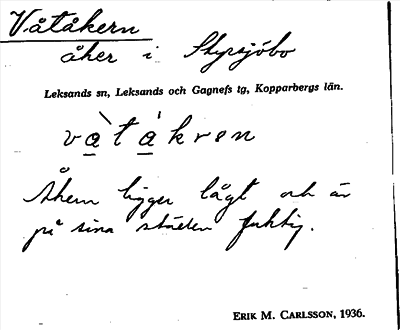 Våtåkern
åker i Styrsjöbo
Leksands sn, Leksands och Gagnefs tg, Kopparbergs län.
và̱tá̱kren
Åkern ligger lågt och är
på sina ställen fuktig.
ERIK M. CARLSSON, 1936.